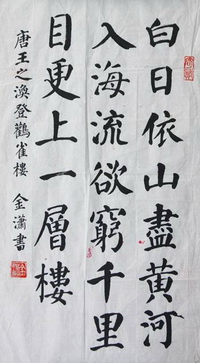 白日依山盡黄河
入海流欲窮千里
目更上一層樓
唐王之渙登鸛雀樓 金瀟書